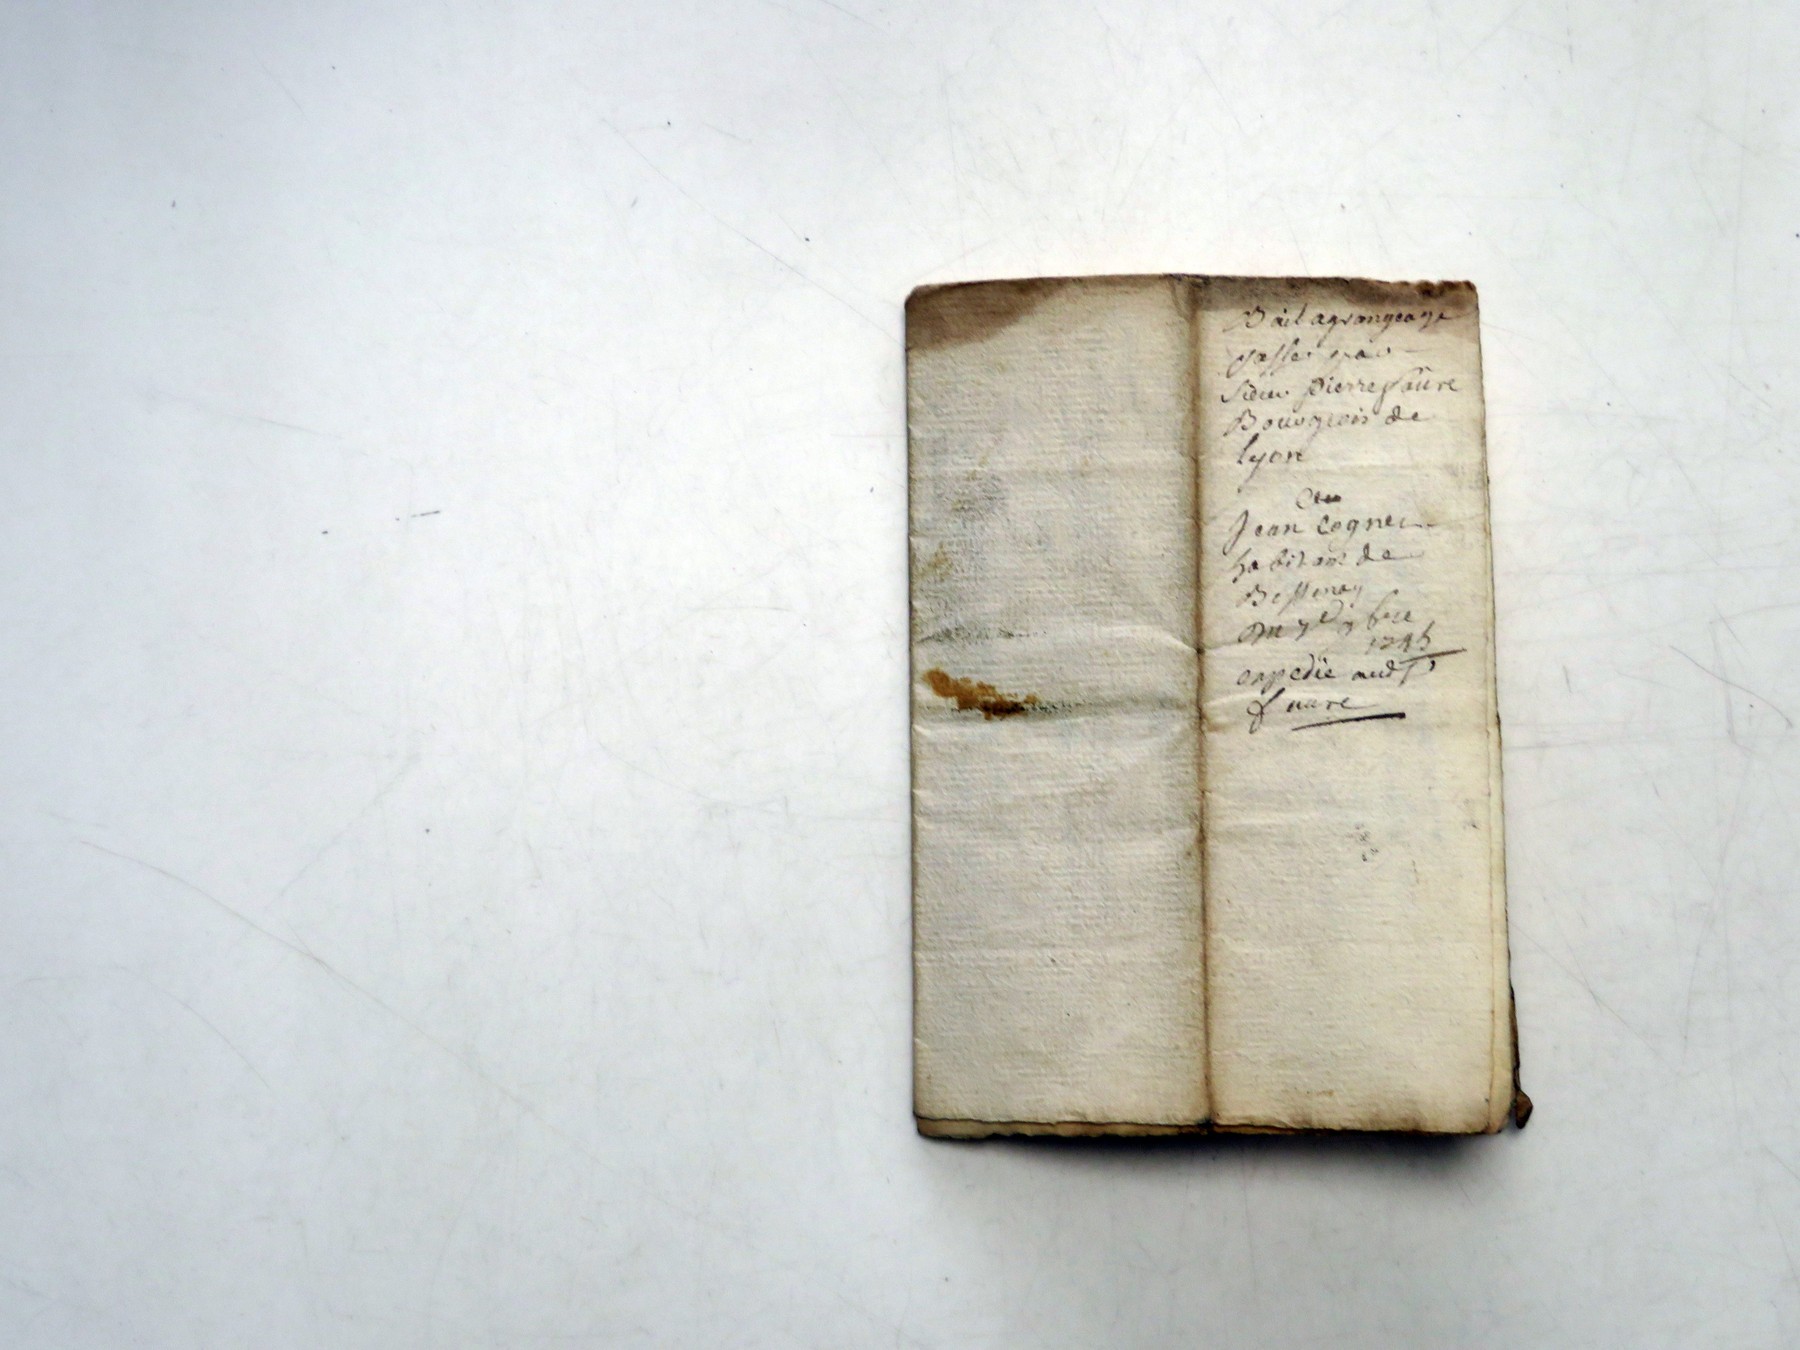 Bail agrangeage
passé par
sieur pierre faure
Bourgeois de
lyon
a
Jean Cognet
habitant de
Bessenay
Du 7e 9bre
1745
expedié aud sr
faure